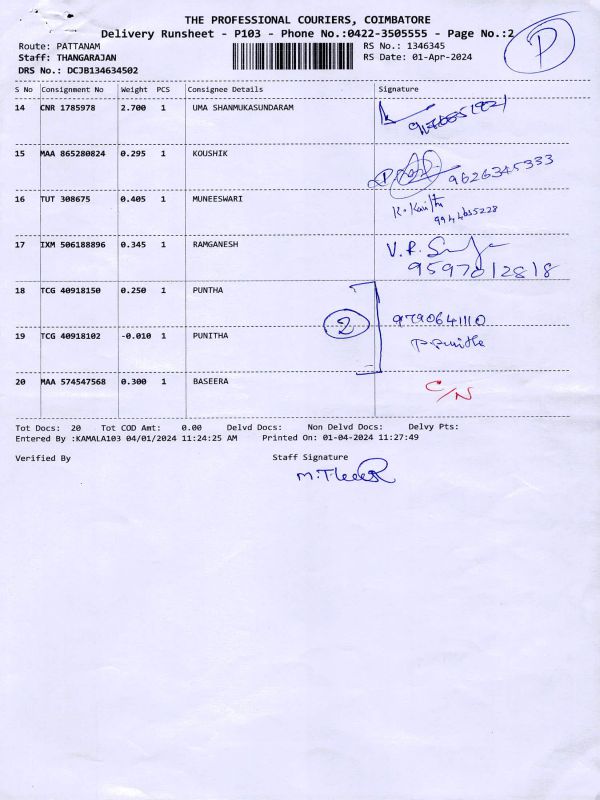 THE PROFESSIONAL COURIERS, COIMBATORE
Delivery Runsheet - P103 - Phone No.:0422-3505555 - Page No.:2
P
Route: PATTANAM RS No.: 1346345
Staff: THANGARAJAN RS Date: 01-Apr-2024
DRS No.: DCJB134634502
S No Consignment No Weight PCS Consignee Details Signature
14 CNR 1785978 2.700 1 UMA SHANMUKASUNDARAM
15 MAA 865280824 0.295 1 KOUSHIK 9626345333
16 TUT 308675 0.405 1 MUNEESWARI
9944635228
17 IXM 506188896 0.345 1 RAMGANESH V.R.
9597012818
18 TCG 40918150 0.250 1 PUNTHA
2 9790641110
19 TCG 40918102 -0.010 1 PUNITHA P.Punitha
20 MAA 574547568 0.300 1 BASEERA C/N
Tot Docs: 20 Tot COD Amt: 0.00 Delvd Docs: Non Delvd Docs: Delvy Pts:
Entered By :KAMALA103 04/01/2024 11:24:25 AM Printed On: 01-04-2024 11:27:49
Verified By Staff Signature